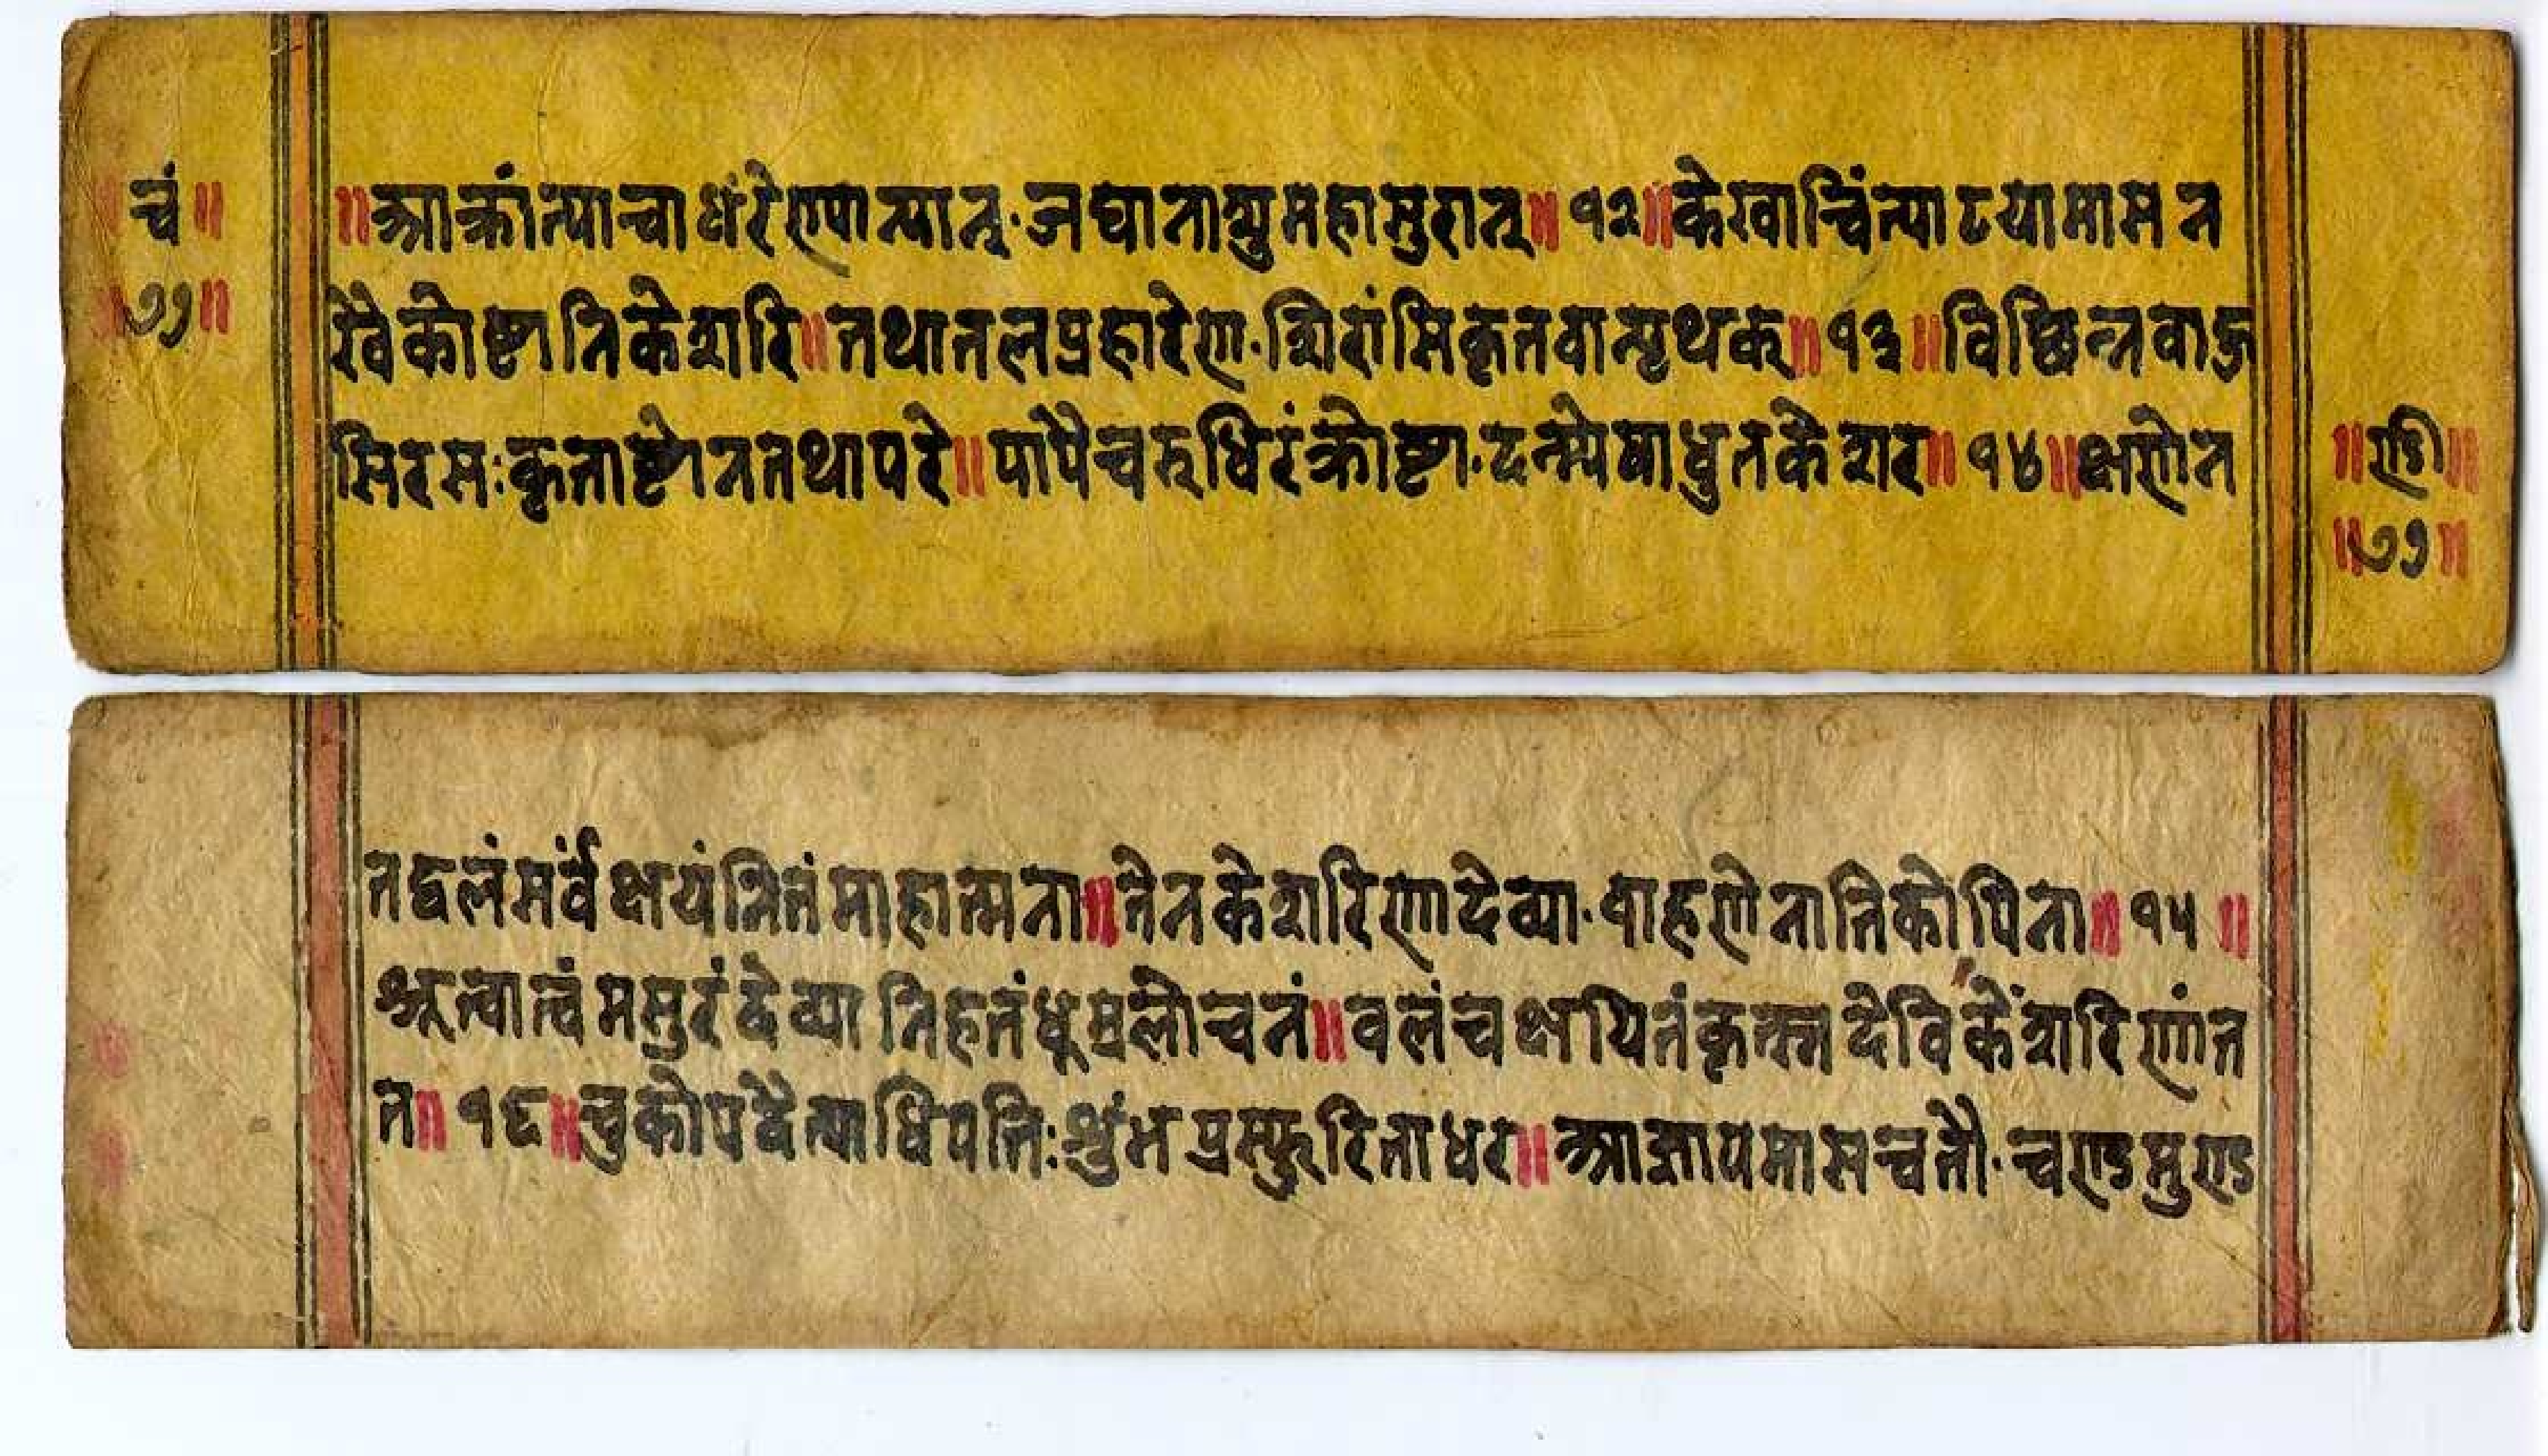 चं॥
॥७१॥
॥आक्रांत्याचाधरेणान्यान्·जघानाशुमहासुरान्॥१२॥केखान्चिंत्पाटयामासन
खैकोष्टानिकेशरि॥तथातलप्रहारेण·शिरांसिकृतवान्पृथक्॥१३॥विछिन्नवाहु
सिरसःकृताष्टेनतथापरे॥पापैचरुधिरंक्रोष्टा·दन्येषाधुतकेशर॥१४॥क्षणेन
॥ण्डी॥
॥७१॥
तद्वलंसर्वंक्षयंनितंमाहात्मना॥तेनकेशरिणादेव्या·वाहणेनातिकोपिना॥१५॥
श्रूत्वात्वंमसुरंदेव्यानिहतंधूम्रलोचनं॥वलंचक्षयितंकृत्स्नदेविकेंशरिणांत
त॥१६॥चुकोपदैत्याधिपतिःशुंभप्रस्फुरिताधर॥आज्ञापमासचतौ·चण्डमुण्ड